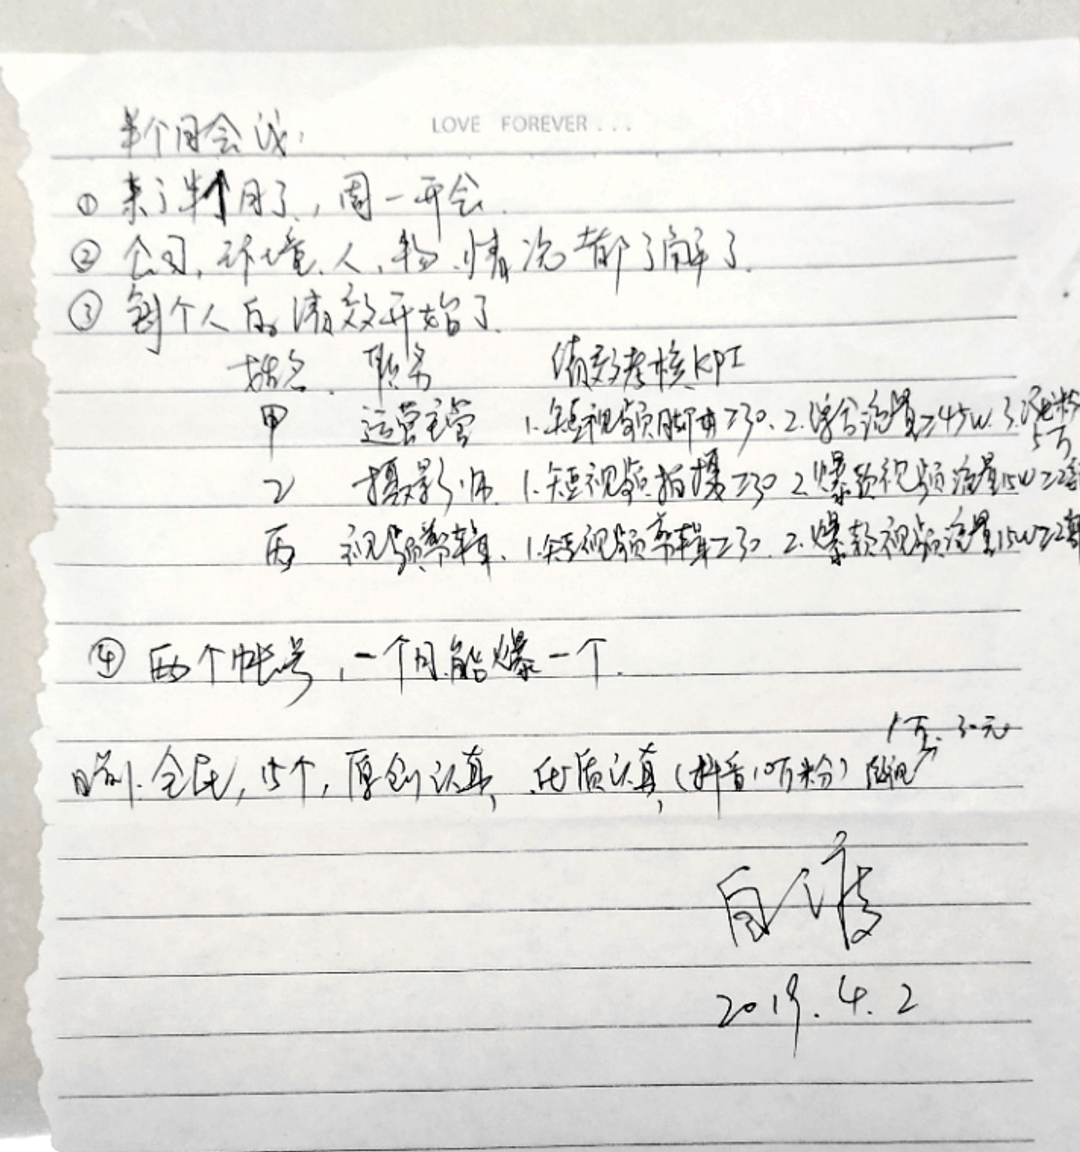 LOVE FOREVER...
半个月会议:
① 来了半个月了, 周一开会.
② 公司, 环境, 人, 物, 情况都了解了.
③ 每个人的绩效开始了.
姓名 职务 绩效考核KPI
甲 运营主管 1.短视频脚本≥30. 2.综合流量≥45w. 3. 粉 5万
乙 摄影师 1.短视频拍摄≥30 2.爆款视频流量15w≥2
丙 视频剪辑. 1.短视频剪辑≥30. 2.爆款视频流量15w≥2
④ 两个帐号, 一个月能爆一个.
1万. 30元
全民, 15个, 原创认真, 认真, (抖音10万粉)
2019.4.2